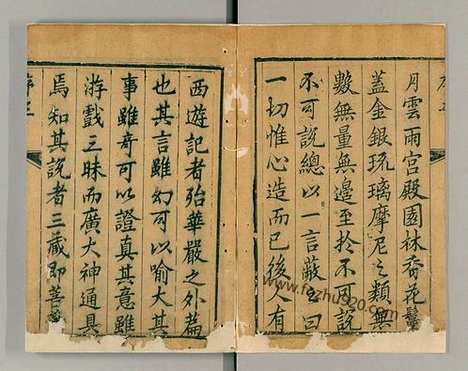 月雲雨宮殿園林香花鬘
蓋金銀琉璃摩尼之類無
數無量無邊至於不可說
不可說總以一言蔽之曰
一切惟心造而已後人有
西遊記者殆華嚴之外篇
也其言雖幻可以喻大其
事雖奇可以證真其意雖
游戲三昧而廣大神通具
焉知其說者三藏即菩薩